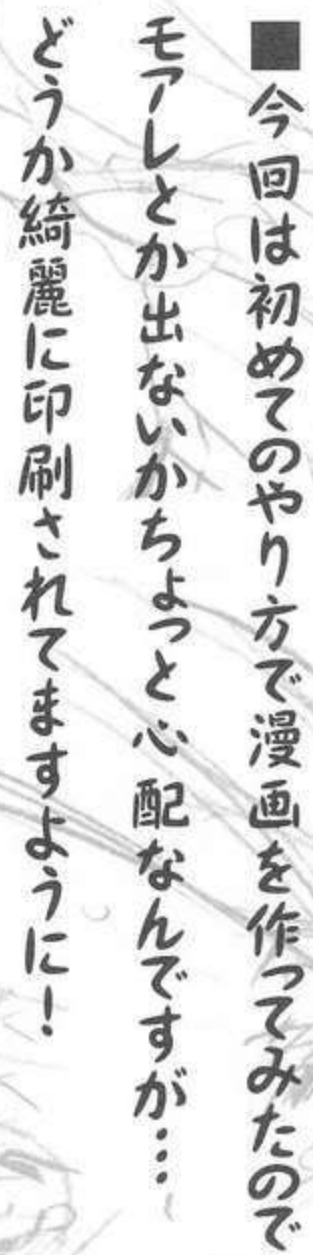 ■今回は初めてのやり方で漫画を作ってみたので
モアレとか出ないかちょっと心配なんですが…
どうか綺麗に印刷されてますように!